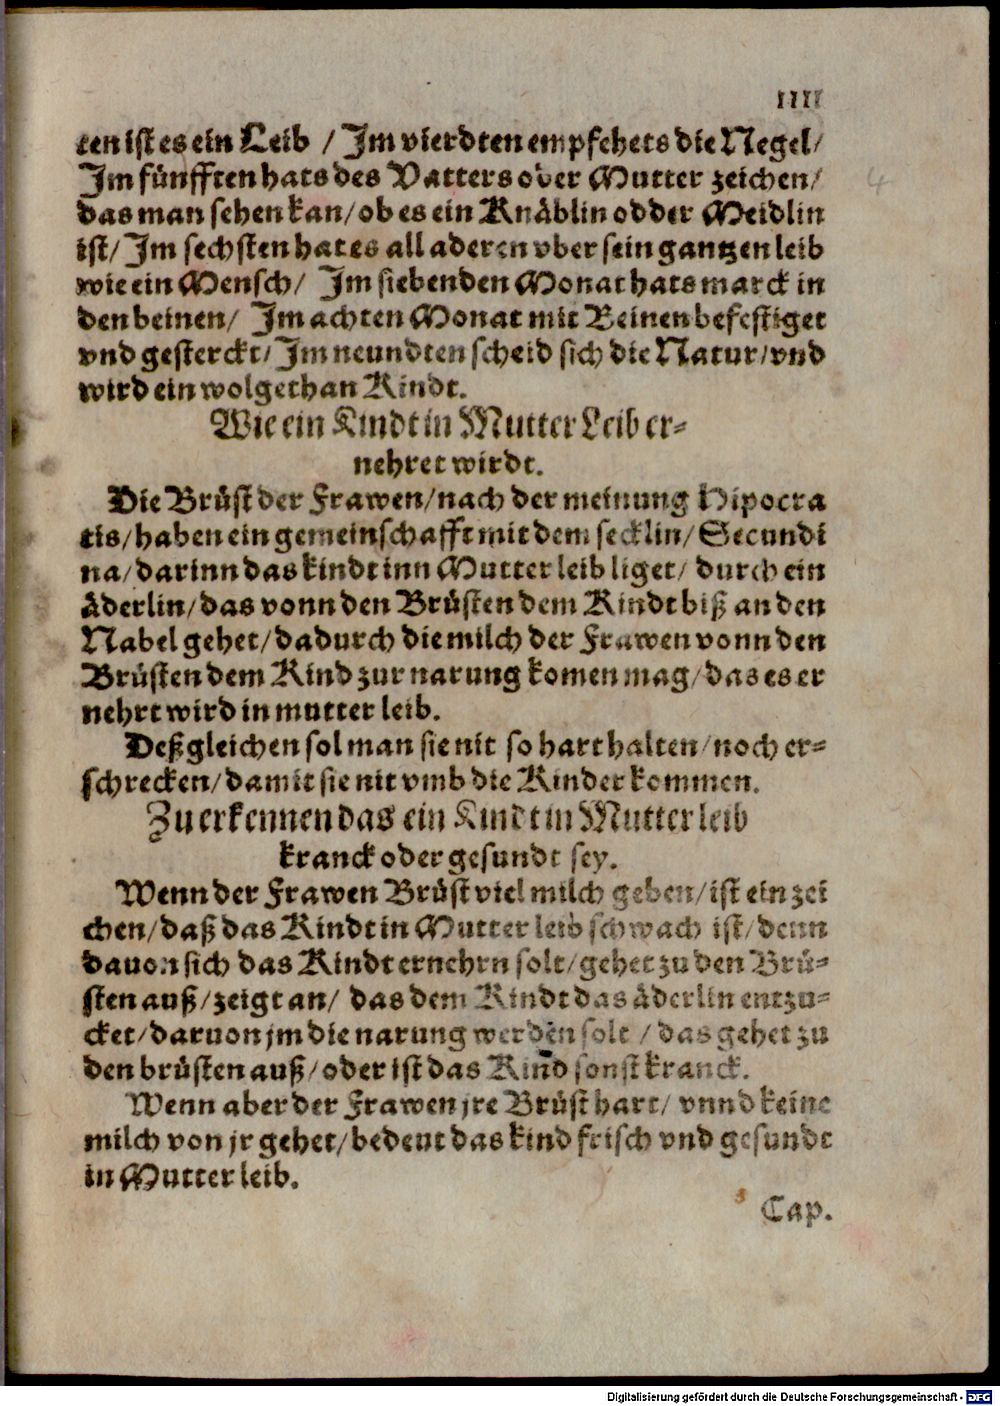 IIII
4
ten ist es ein Leib / Im vierdten empfehets die Negel/
Im fünfften hats des Vatters oder Mutter zeichen/
das man sehen kan/ ob es ein Knäblin odder Meidlin
ist/ Im sechsten hat es all aderen vber sein gantzen leib
wie ein Mensch/ Im siebenden Monat hats marck in
den beinen/ Im achten Monat mit Beinen befestiget
vnd gesterckt/ Im neundten scheid sich die Natur/ vnd
wird ein wolgethan Kindt.
Wie ein Kindt in Mutter Leib er-
nehret wirdt.
Die Brüst der Frawen/ nach der meinung Hipocra
tis/ haben ein gemeinschafft mit dem secklin/ Secundi
na/ darinn das kindt inn Mutter leib liget/ durch ein
äderlin/ das vonn den Brüsten dem Kindt biß an den
Nabel gehet/ dadurch die milch der Frawen vonn den
Brüsten dem Kind zur narung komen mag/ das es er
nehrt wird in mutter leib.
Deßgleichen sol man sie nit so hart halten/ noch er-
schrecken/ damit sie nit vmb die Kinder kommen.
Zu erkennen das ein Kindt in Mutter leib
kranck oder gesundt sey.
Wenn der Frawen Brüst viel milch geben/ ist ein zei
chen/ daß das Kindt in Mutter leib schwach ist/ denn
dauon sich das Kindt ernehrn solt/ gehet zu den Brü-
sten auß/ zeigt an/ das dem Kindt das äderlin entzu-
cket/ daruon jm die narung werden solt / das gehet zu
den brüsten auß/ oder ist das Kind sonst kranck.
Wenn aber der Frawen jre Brüst hart/ vnnd keine
milch von jr gehet/ bedeut das kind frisch vnd gesundt
in Mutter leib.
Cap.
Digitalisierung gefördert durch die Deutsche Forschungsgemeinschaft - DFG